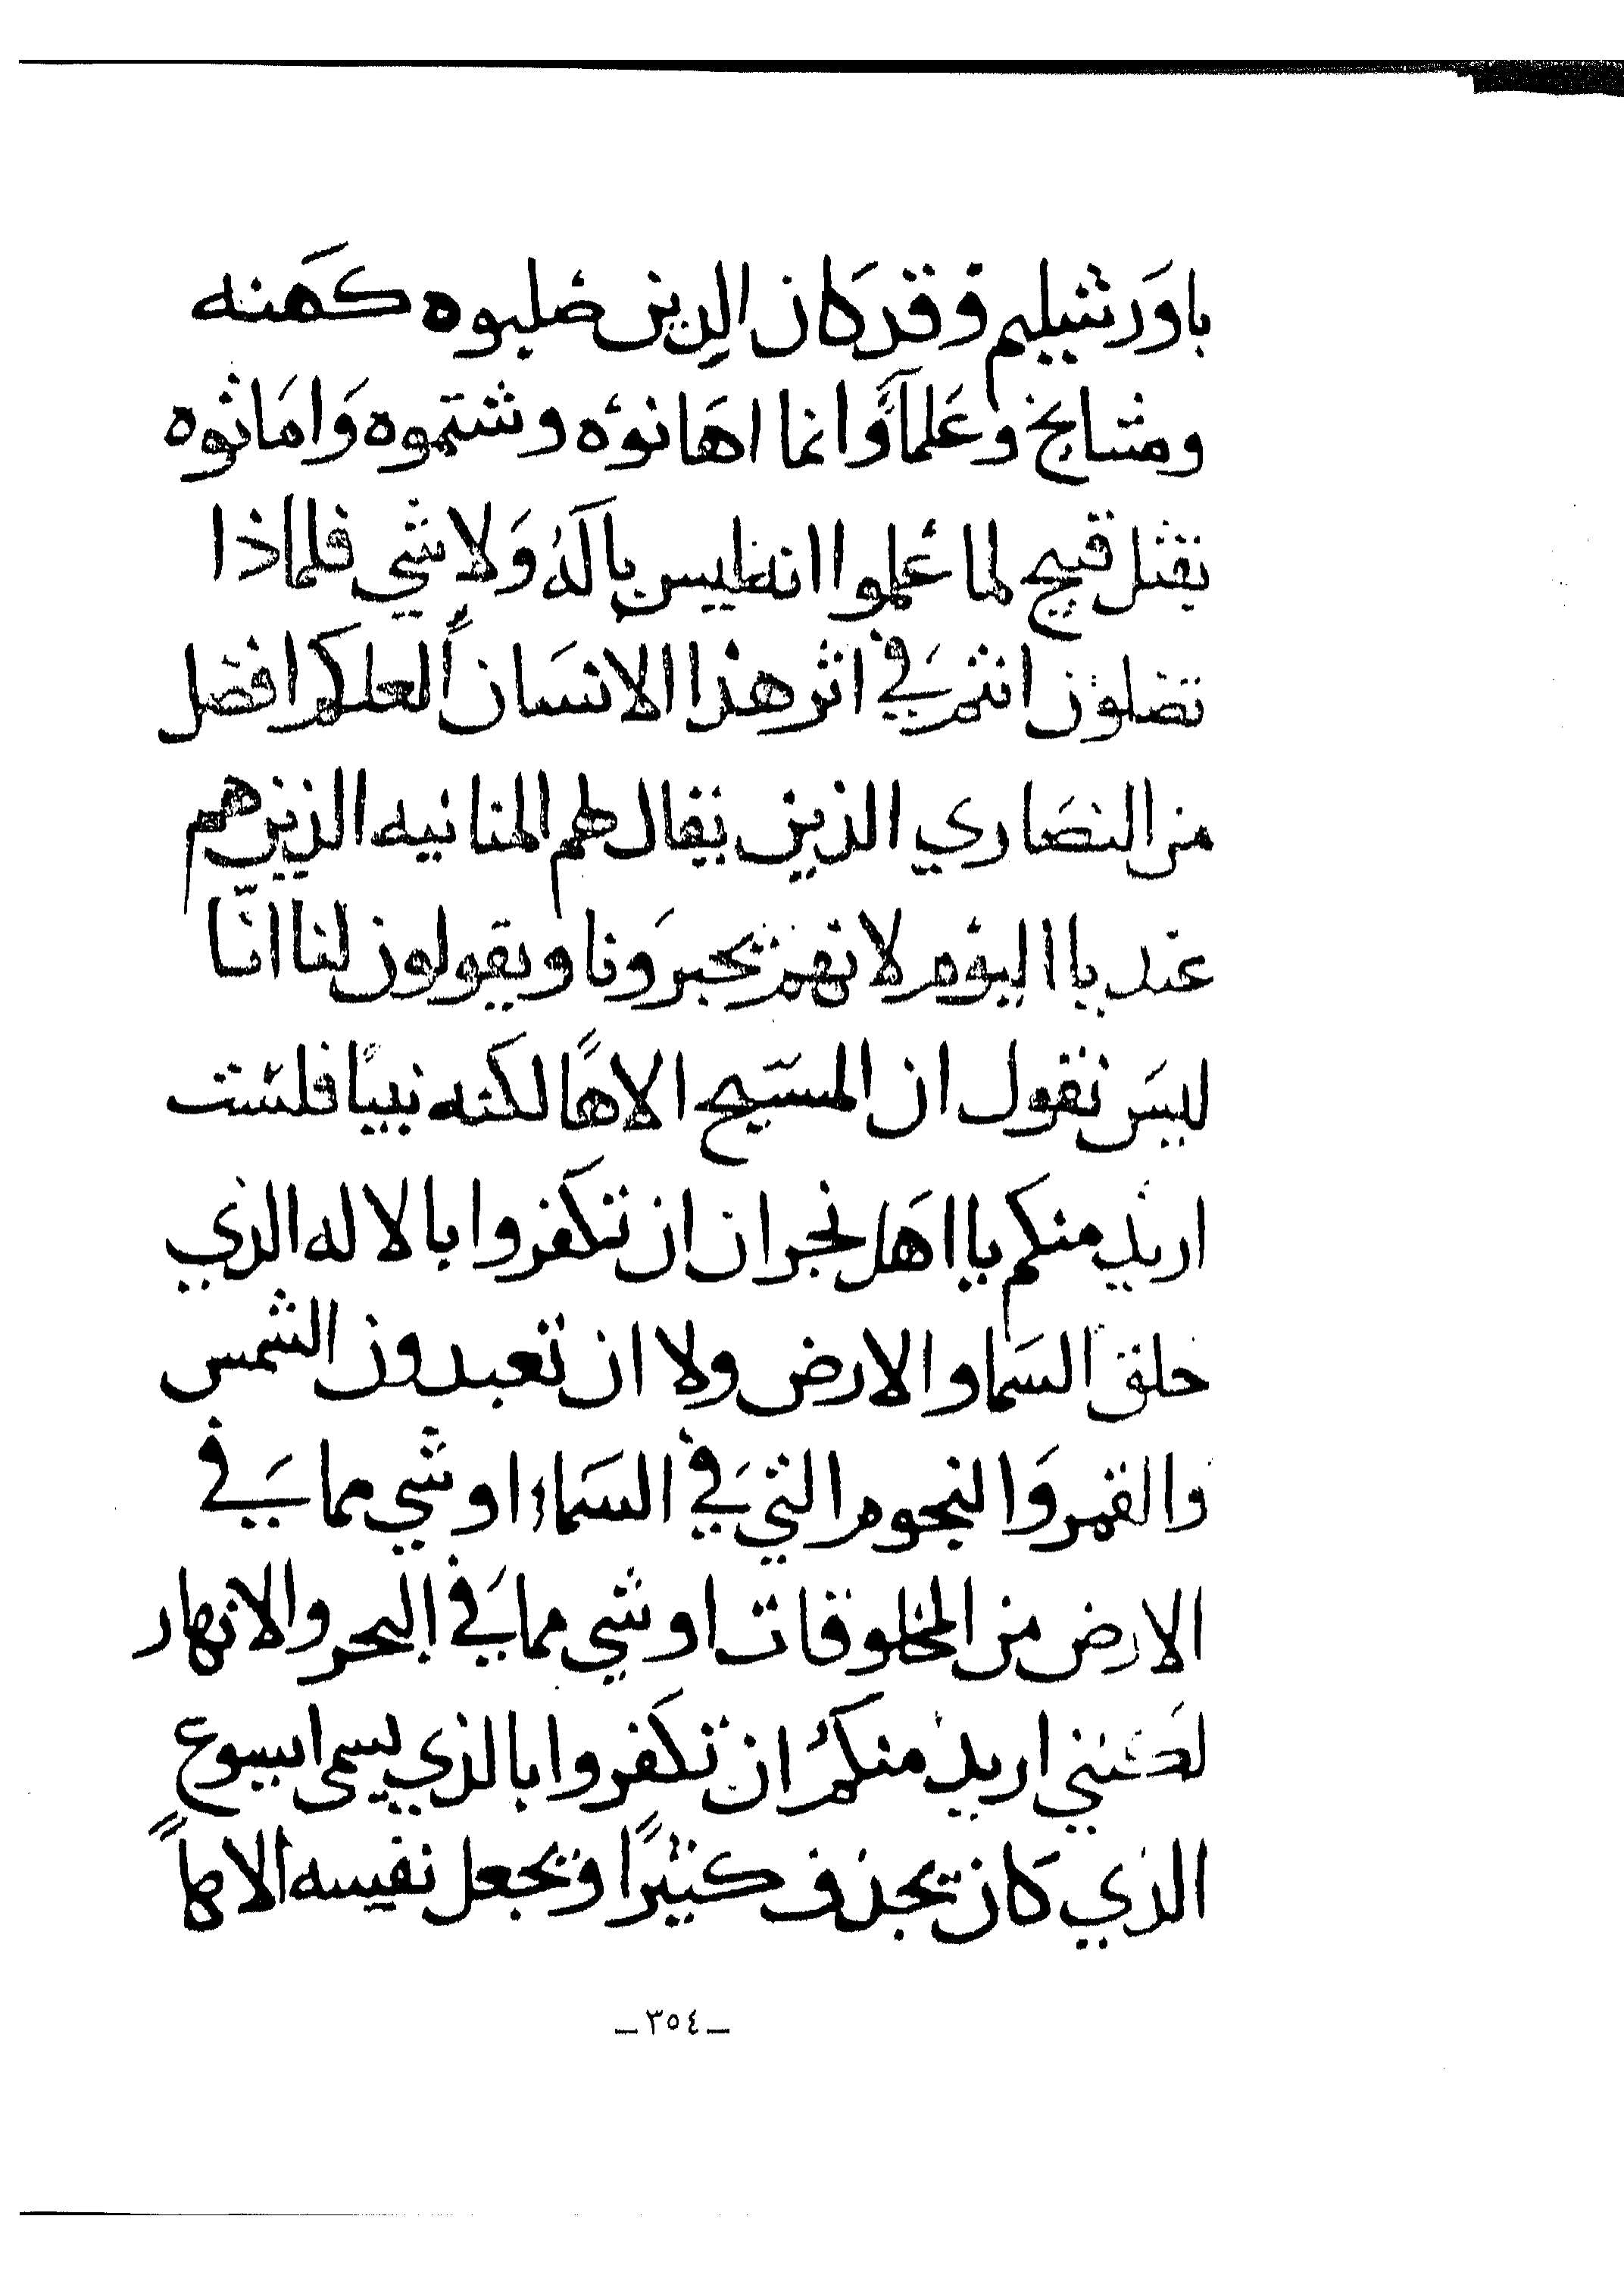 باورشيليم وقد كان الدين صلبوه كهنه
ومشايخ وعلماً وانما اهانوه وشتموه واماثوه
بقتل قبيح لما علموا انه ليس بالَهُ ولا شي فلماذا
تضلون انتم في اثر هذا الانسان العلكم افضل
من النصاري الذين يقال لهم المنانيه الذين هم
عندنا اليوم لانهم يخبرونا ويقولون لنا انا
ليس نقول ان المسيح الاهًا لكنه نبيًا فلست
اريد منكم يا اهل نجران ان تكفروا بالاله الذي
خلق السما والارض ولا ان تعبدون الشمس
والقمر والنجوم التي في السماء او شي مما في
الارض من المخلوقات او شي مما في البحر والانهار
لكنني اريد منكم ان تكفروا بالذي يسمى ايسوع
الذي كان يجذف كثيرًا ويجعل نفسه الاهاً
ـ ٣٥٤ ـ